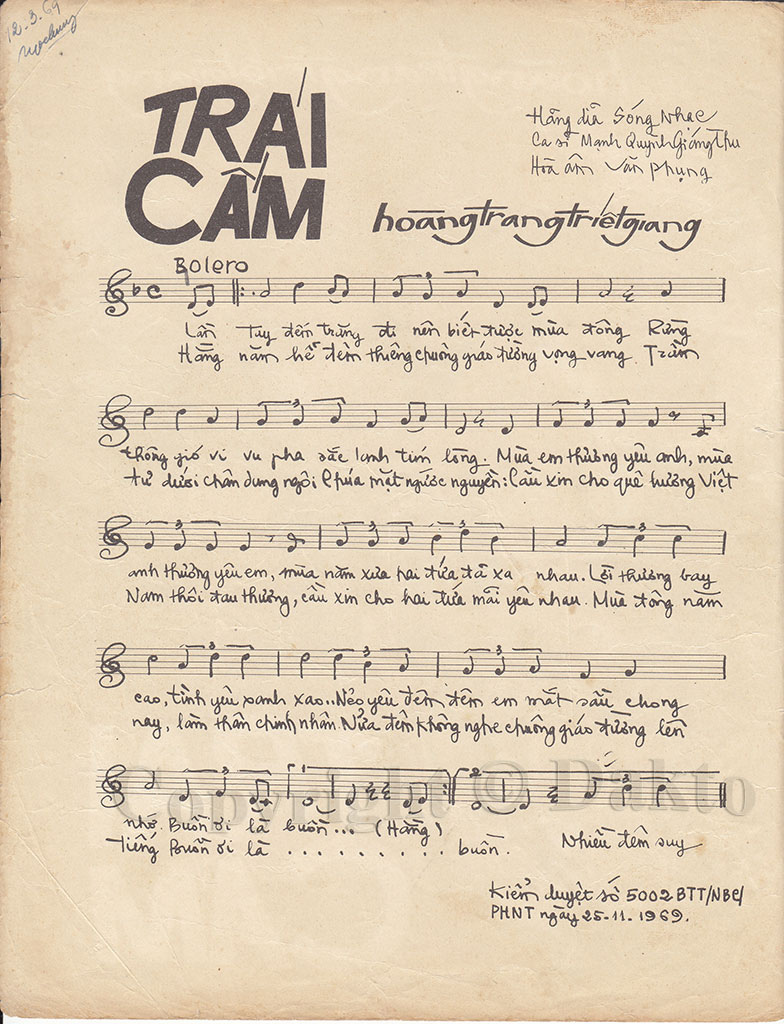 12.3.69
TRÁI
CẤM
Hãng dĩa Sóng Nhạc
Ca sĩ Mạnh Quỳnh Giáng Thu
Hòa âm Văn Phụng
hoàngtrangtriếtgiang
Bolero
Lần Tuy đếm trăng đi nên biết được mùa đông Rừng
Hằng năm hễ đêm thiêng chuông giáo đường vọng vang Trầm
thông gió vi vu pha sắc lạnh tím lòng. Mùa em thương yêu anh, mùa
tư dưới chân dung ngôi Chúa mặt ngước nguyền: Cầu xin cho quê hương Việt
anh thương yêu em, mùa năm xưa hai đứa đã xa nhau. Lời thương bay
Nam thôi đau thương, cầu xin cho hai đứa mãi yêu nhau. Mùa đông năm
cao, tình yêu xanh xao.. Nẻo yêu đêm đêm em mắt sầu chong
nay, làm thân chinh nhân Nửa đêm không nghe chuông giáo đường lên
3
1
2
nhớ. Buồn ơi là buồn... (Hằng)
tiếng Buồn ơi là . . . . . . . . . buồn. Nhiều đêm suy
Copyright © Dakto
Kiểm duyệt số 5002 BTT/NBC/
PHNT ngày 25-11-1969.